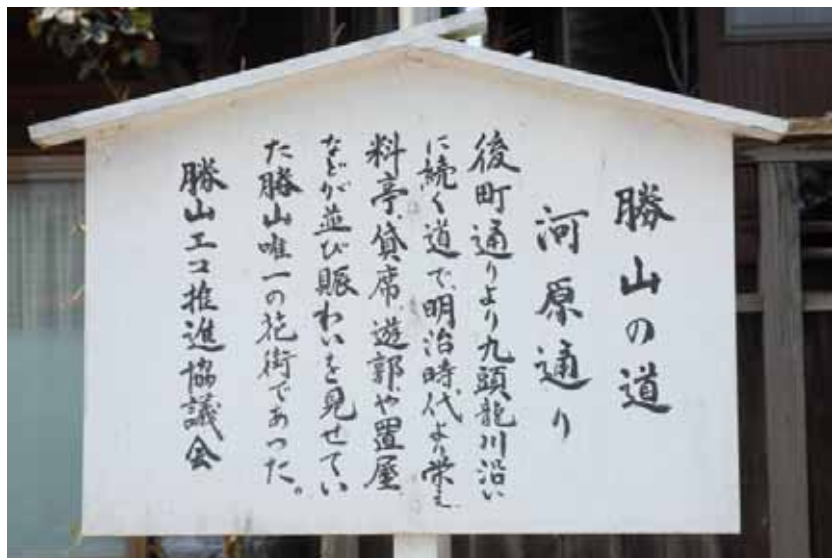 勝山の道
河原通り
後町通りより九頭龍川沿い
に続く道で、明治時代より栄え
料亭、貸席、遊郭や置屋
などが並び賑わいを見せてい
た勝山唯一の花街であった。
勝山エコ推進協議会